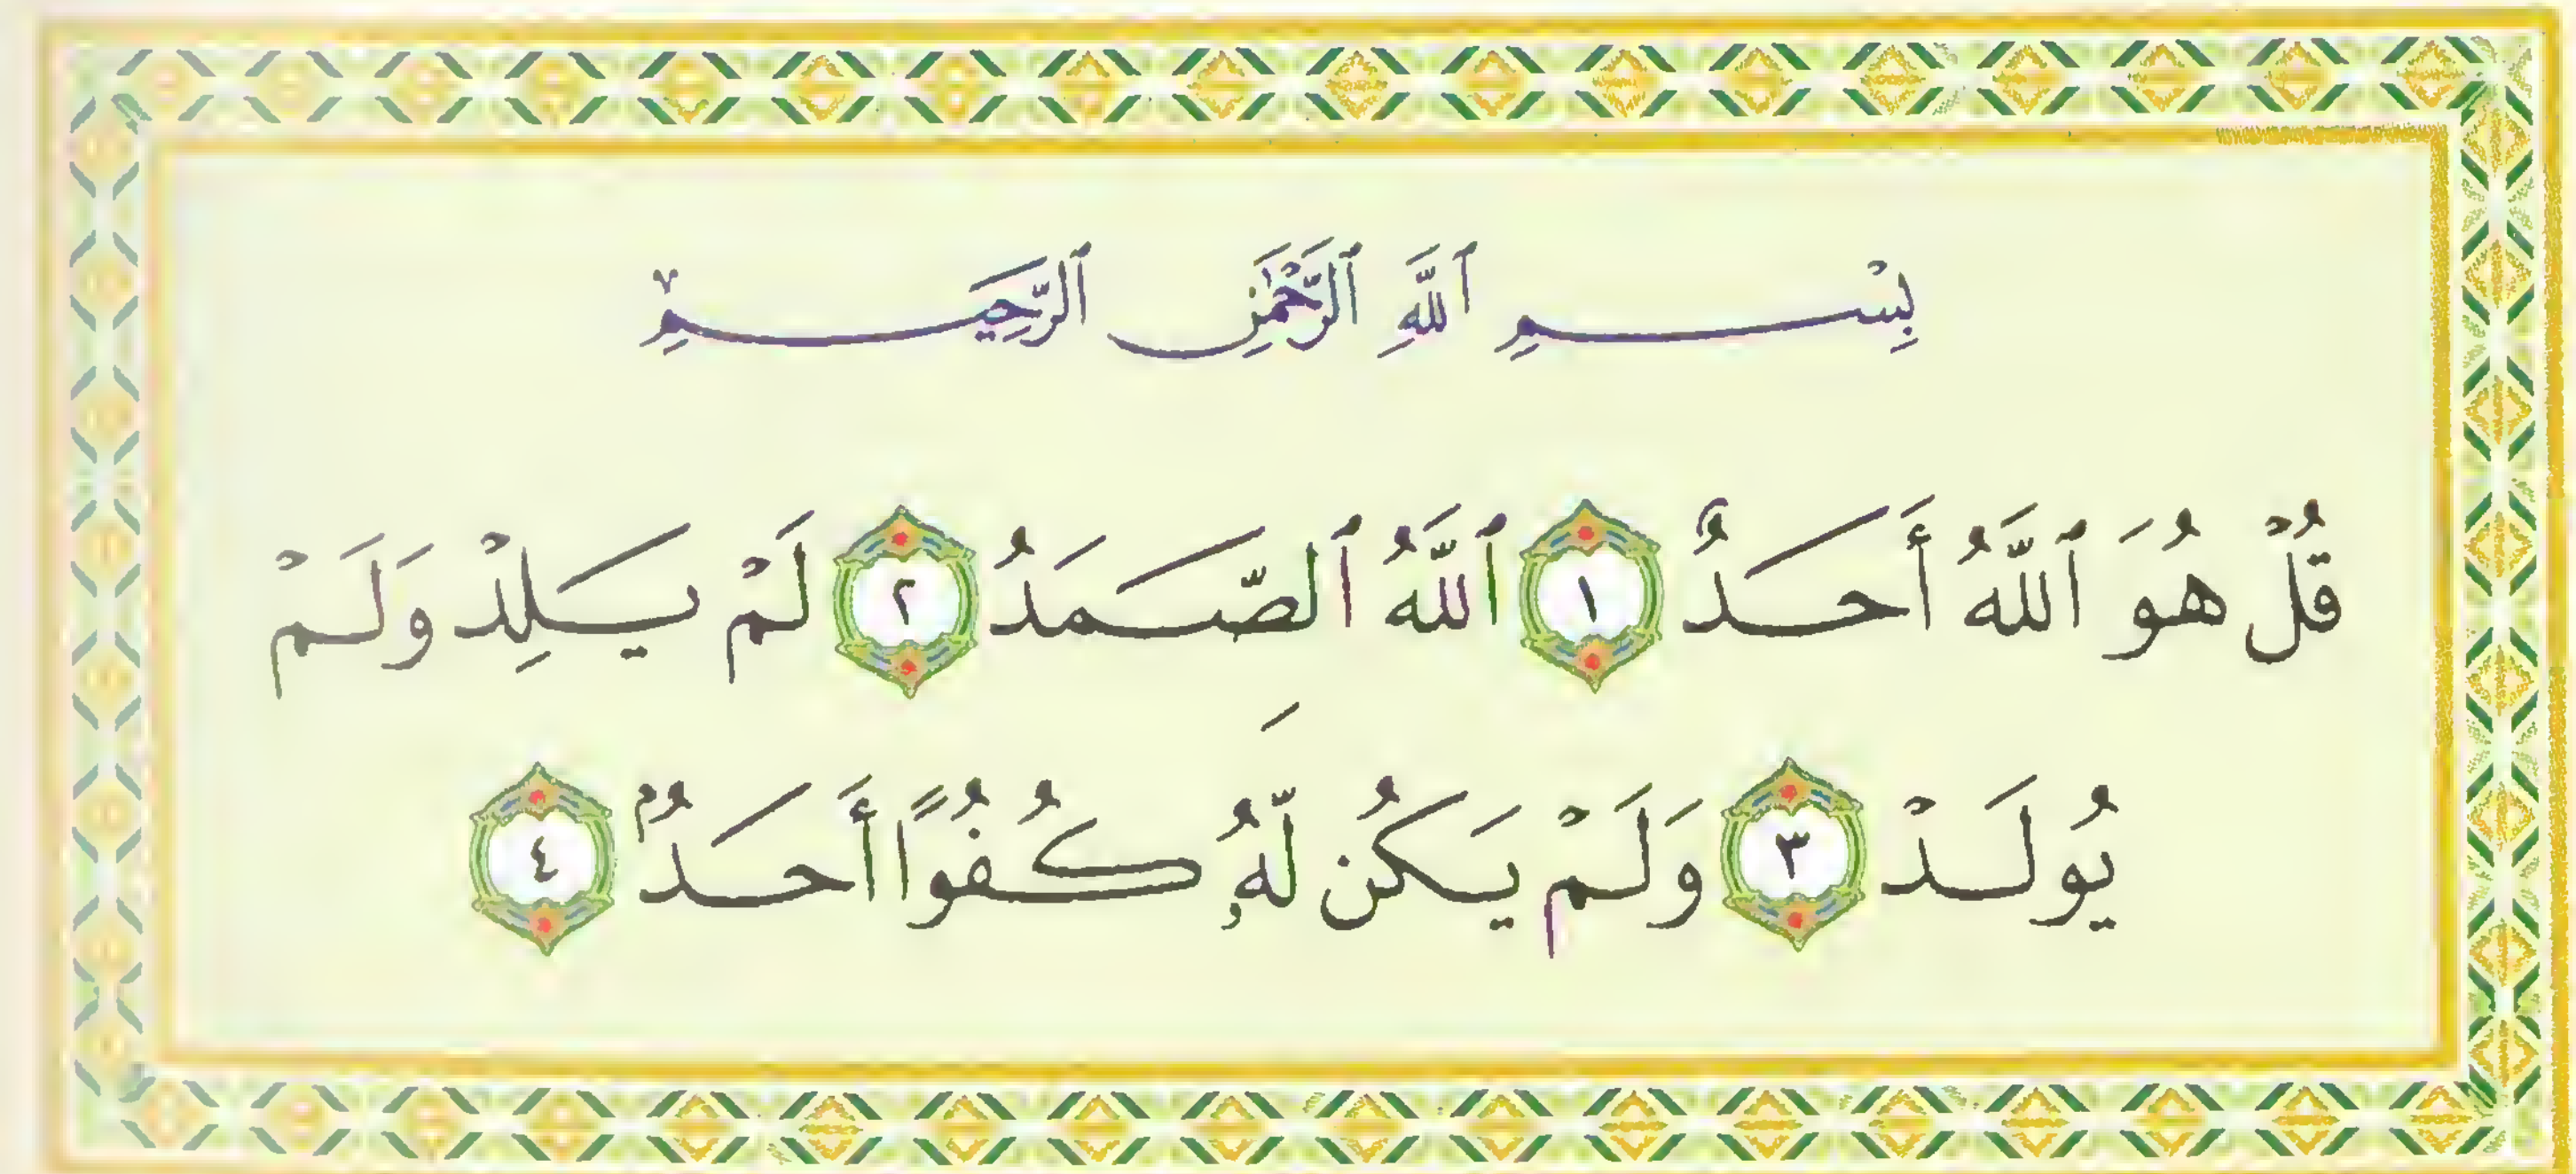 بِسْمِ ٱللَّهِ ٱلرَّحْمَٰنِ ٱلرَّحِيمِ
قُلْ هُوَ ٱللَّهُ أَحَدٌ ١ ٱللَّهُ ٱلصَّمَدُ ٢ لَمْ يَلِدْ وَلَمْ
يُولَدْ ٣ وَلَمْ يَكُن لَّهُۥ كُفُوًا أَحَدٌۢ ٤